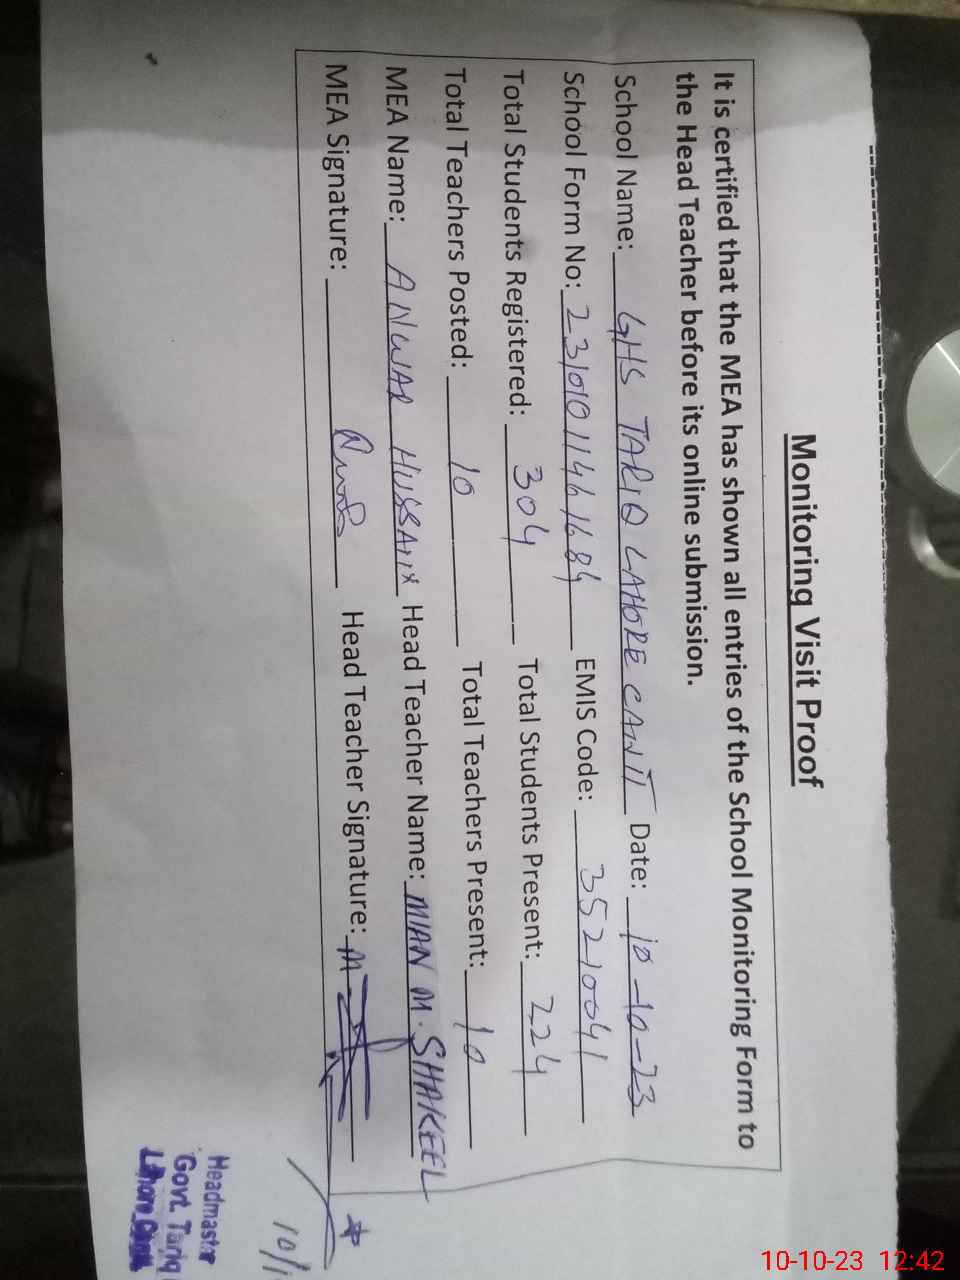 Monitoring Visit Proof
It is certified that the MEA has shown all entries of the School Monitoring Form to
the Head Teacher before its online submission.
School Name: GHS TARIQ LAHORE CANTT Date: 10-10-23
School Form No: 23101011461684 EMIS Code: 35210041
Total Students Registered: 304 Total Students Present: 224
Total Teachers Posted: 10 Total Teachers Present: 10
MEA Name: ANWAR HUSSAIN Head Teacher Name: MIAN M. SHAKEEL
MEA Signature: Head Teacher Signature:
10/1
Headmaster
Govt. Tariq
Lahore Cantt
10-10-23 12:42